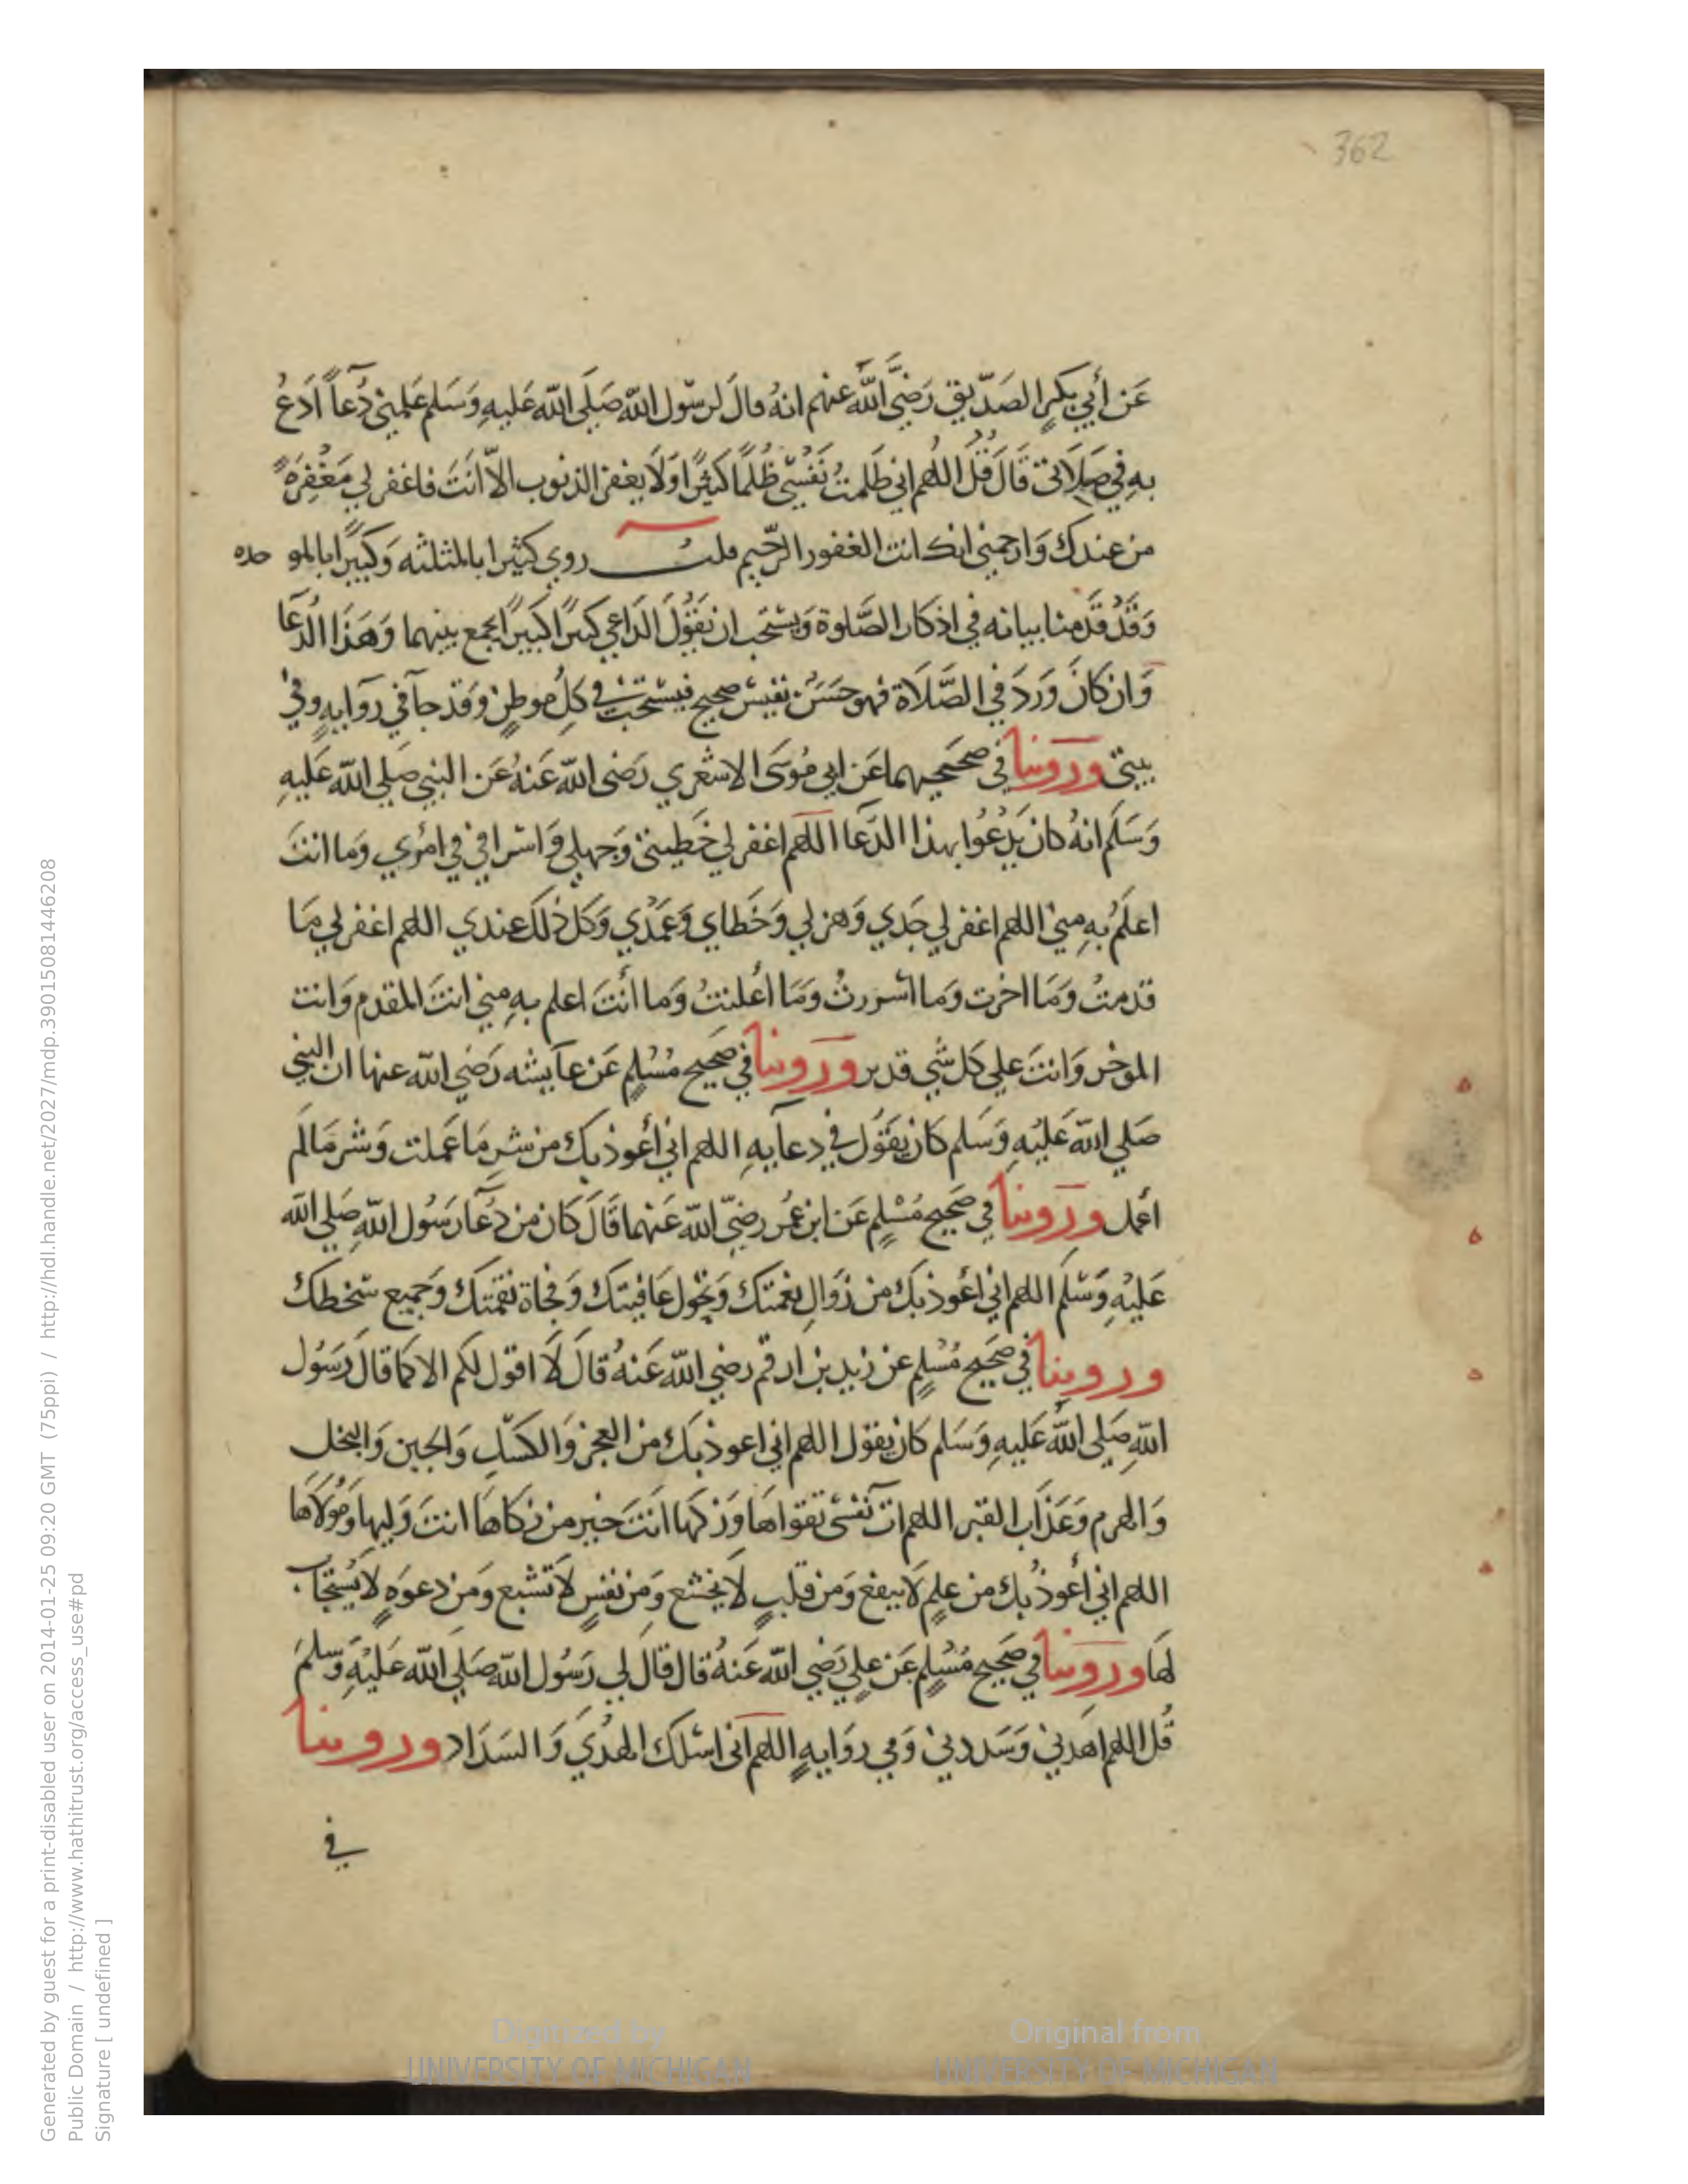 362
عَن أبي بَكرٍ الصّدّيق رَضيَّ اللَّه عنهم انهُ قالَ لرسّول اللّه صَلَى اللّه عَليهِ وَسَلم عَلِّمني دُعآً اَدعُ
بهِ في صَلَاتى قَالَ قُل اللهُم اني ظَلمتُ نَفْسِي ظُلمًا كَثيرًا وَلَا يغفر الذنوب الاّ انتَ فاغفر لي مَغْفِرَةً
من عندك وَارحمني انك انت الغفور الرّحيم قلتُ روي كثيرا بالمثلثه وَكبيرًا بالمو حده
وَقَد قَدّمنا بيانه في اذكار الصَّلوة وَيستحب ان يَقُولَ الدَاعي كثيراً كَبيرًا يجمع بينهما وَهَذا الدُعَآ
وَان كَانَ وَرَدَ في الصَّلَاة فهو حَسَن نفيسْ صحيح فيسْتحبّ في كلِ موطنٍ وَقَد جآ في روَايهٍ وفي
بيتى وَرَوينا في صحيحيهما عَن ابي مُوسَى الاشعري رَضى اللّه عَنهُ عَن النبي صلي اللّه عَليهِ
وَسَلَم انهُ كان يَدْعُوا بهذا الدّعا اللهم اغفر لي خَطيتى وَجهلي وَاسرافي في امْري وَما انتَ
اعلَمُ بهِ مِني اللهم اغفر لي جَدي وَهزلي وَخَطاي وَعَمْدي وَكل ذلك عندي اللهم اغفر لي مَا
قدمتُ وَمَا اخرت وَما اسْررتُ وَمَا اعُلنتُ وَما أنتَ اعلم بهِ مِني انتَ المقدم وَانت
الموخر وَانتَ علي كل شَي قدير وَرَوينا في صَحيح مُسْلمٍ عَن عآيشه رَضي اللّه عنها ان النبي
صَلي اللّه عَليْهِ وَسَلم كَان يَقُول في دعآيهِ اللهم اني أعُوذ بك من شرِ مَا عَملت وَشر مَا لَم
أعمل وَرَوينا في صَحيح مُسْلمٍ عَن ابن عُمر رضيّ اللّه عَنهما قَالَ كَان من دُعآ رَسُول اللّهِ صَلي اللّه
عَليْهِ وَسَّلَم اللهم اني أعُوذ بكَ من زَوَالِ نعْمتك وَتَحول عَافيتك وَفجاة نقمتك وَجَميع سَخطك
وروينا في صَحيح مُسْلمٍ عن زَيد بن ارقم رضي اللّه عَنهُ قالَ لَا اقول لكم الا كما قالَ رَسُول
اللّهِ صَلي اللَّه عَليهِ وَسَلم كان يقول اللهم اني اعوذ بك من العجز وَالكسّل وَالجبن وَالبخل
وَالهرم وَعَذاب القبر اللهم ات نفسْي تقواها وَزكها انتَ خير من زكاها انتَ وَليها وَمُولَاها
اللهم اني أعوذ بك من علمٍ لَا ينفع وَمن قلبٍ لَا يخشع وَمن نفسٍ لَا تشبع وَمن دعوَةٍ لا يُستجاب
لها وَرَوينا في صَحيح مُسْلمٍ عَن علي رَضي اللّه عَنهُ قال قالَ لي رَسُول اللّه صَلي اللّه عَليْهِ وَسلمَ
قُل اللهم اهدني وَسَددني وَفي روَايهٍ اللهم انى اسْلك الهُدَي وَالسَدَاد وروينا
في
Generated by guest for a print-disabled user on 2014-01-25 09:20 GMT (75ppi) / http://hdl.handle.net/2027/mdp.39015081446208
Public Domain / http://www.hathitrust.org/access_use#pd
Signature [ undefined ]
Digitized by
UNIVERSITY OF MICHIGAN
Original from
UNIVERSITY OF MICHIGAN